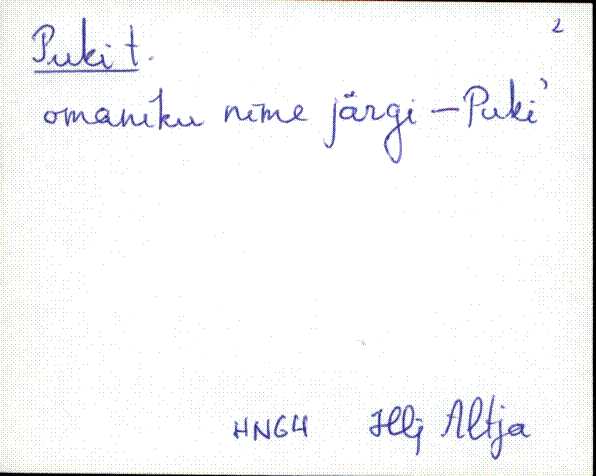 2
Puki t.
omaniku nime järgi – Puki'
HNG4 Hlj Altja